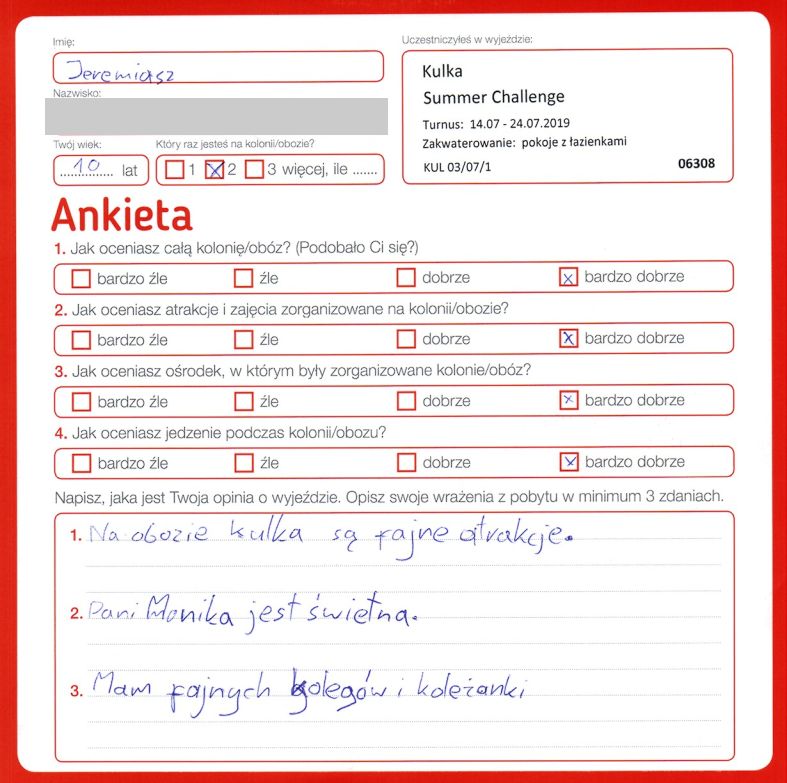 Imię:
Jeremiasz
Nazwisko:
Twój wiek:
10 lat
Który raz jesteś na kolonii/obozie?
1 2 3 więcej, ile .......
Uczestniczyłeś w wyjeździe:
Kulka
Summer Challenge
Turnus: 14.07 - 24.07.2019
Zakwaterowanie: pokoje z łazienkami
KUL 03/07/1 06308
Ankieta
1. Jak oceniasz całą kolonię/obóz? (Podobało Ci się?)
bardzo źle źle dobrze x bardzo dobrze
2. Jak oceniasz atrakcje i zajęcia zorganizowane na kolonii/obozie?
bardzo źle źle dobrze x bardzo dobrze
3. Jak oceniasz ośrodek, w którym były zorganizowane kolonie/obóz?
bardzo źle źle dobrze x bardzo dobrze
4. Jak oceniasz jedzenie podczas kolonii/obozu?
bardzo źle źle dobrze x bardzo dobrze
Napisz, jaka jest Twoja opinia o wyjeździe. Opisz swoje wrażenia z pobytu w minimum 3 zdaniach.
1. Na obozie kulka są fajne atrakcje.
2. Pani Monika jest świetna.
3. Mam fajnych kolegów i koleżanki